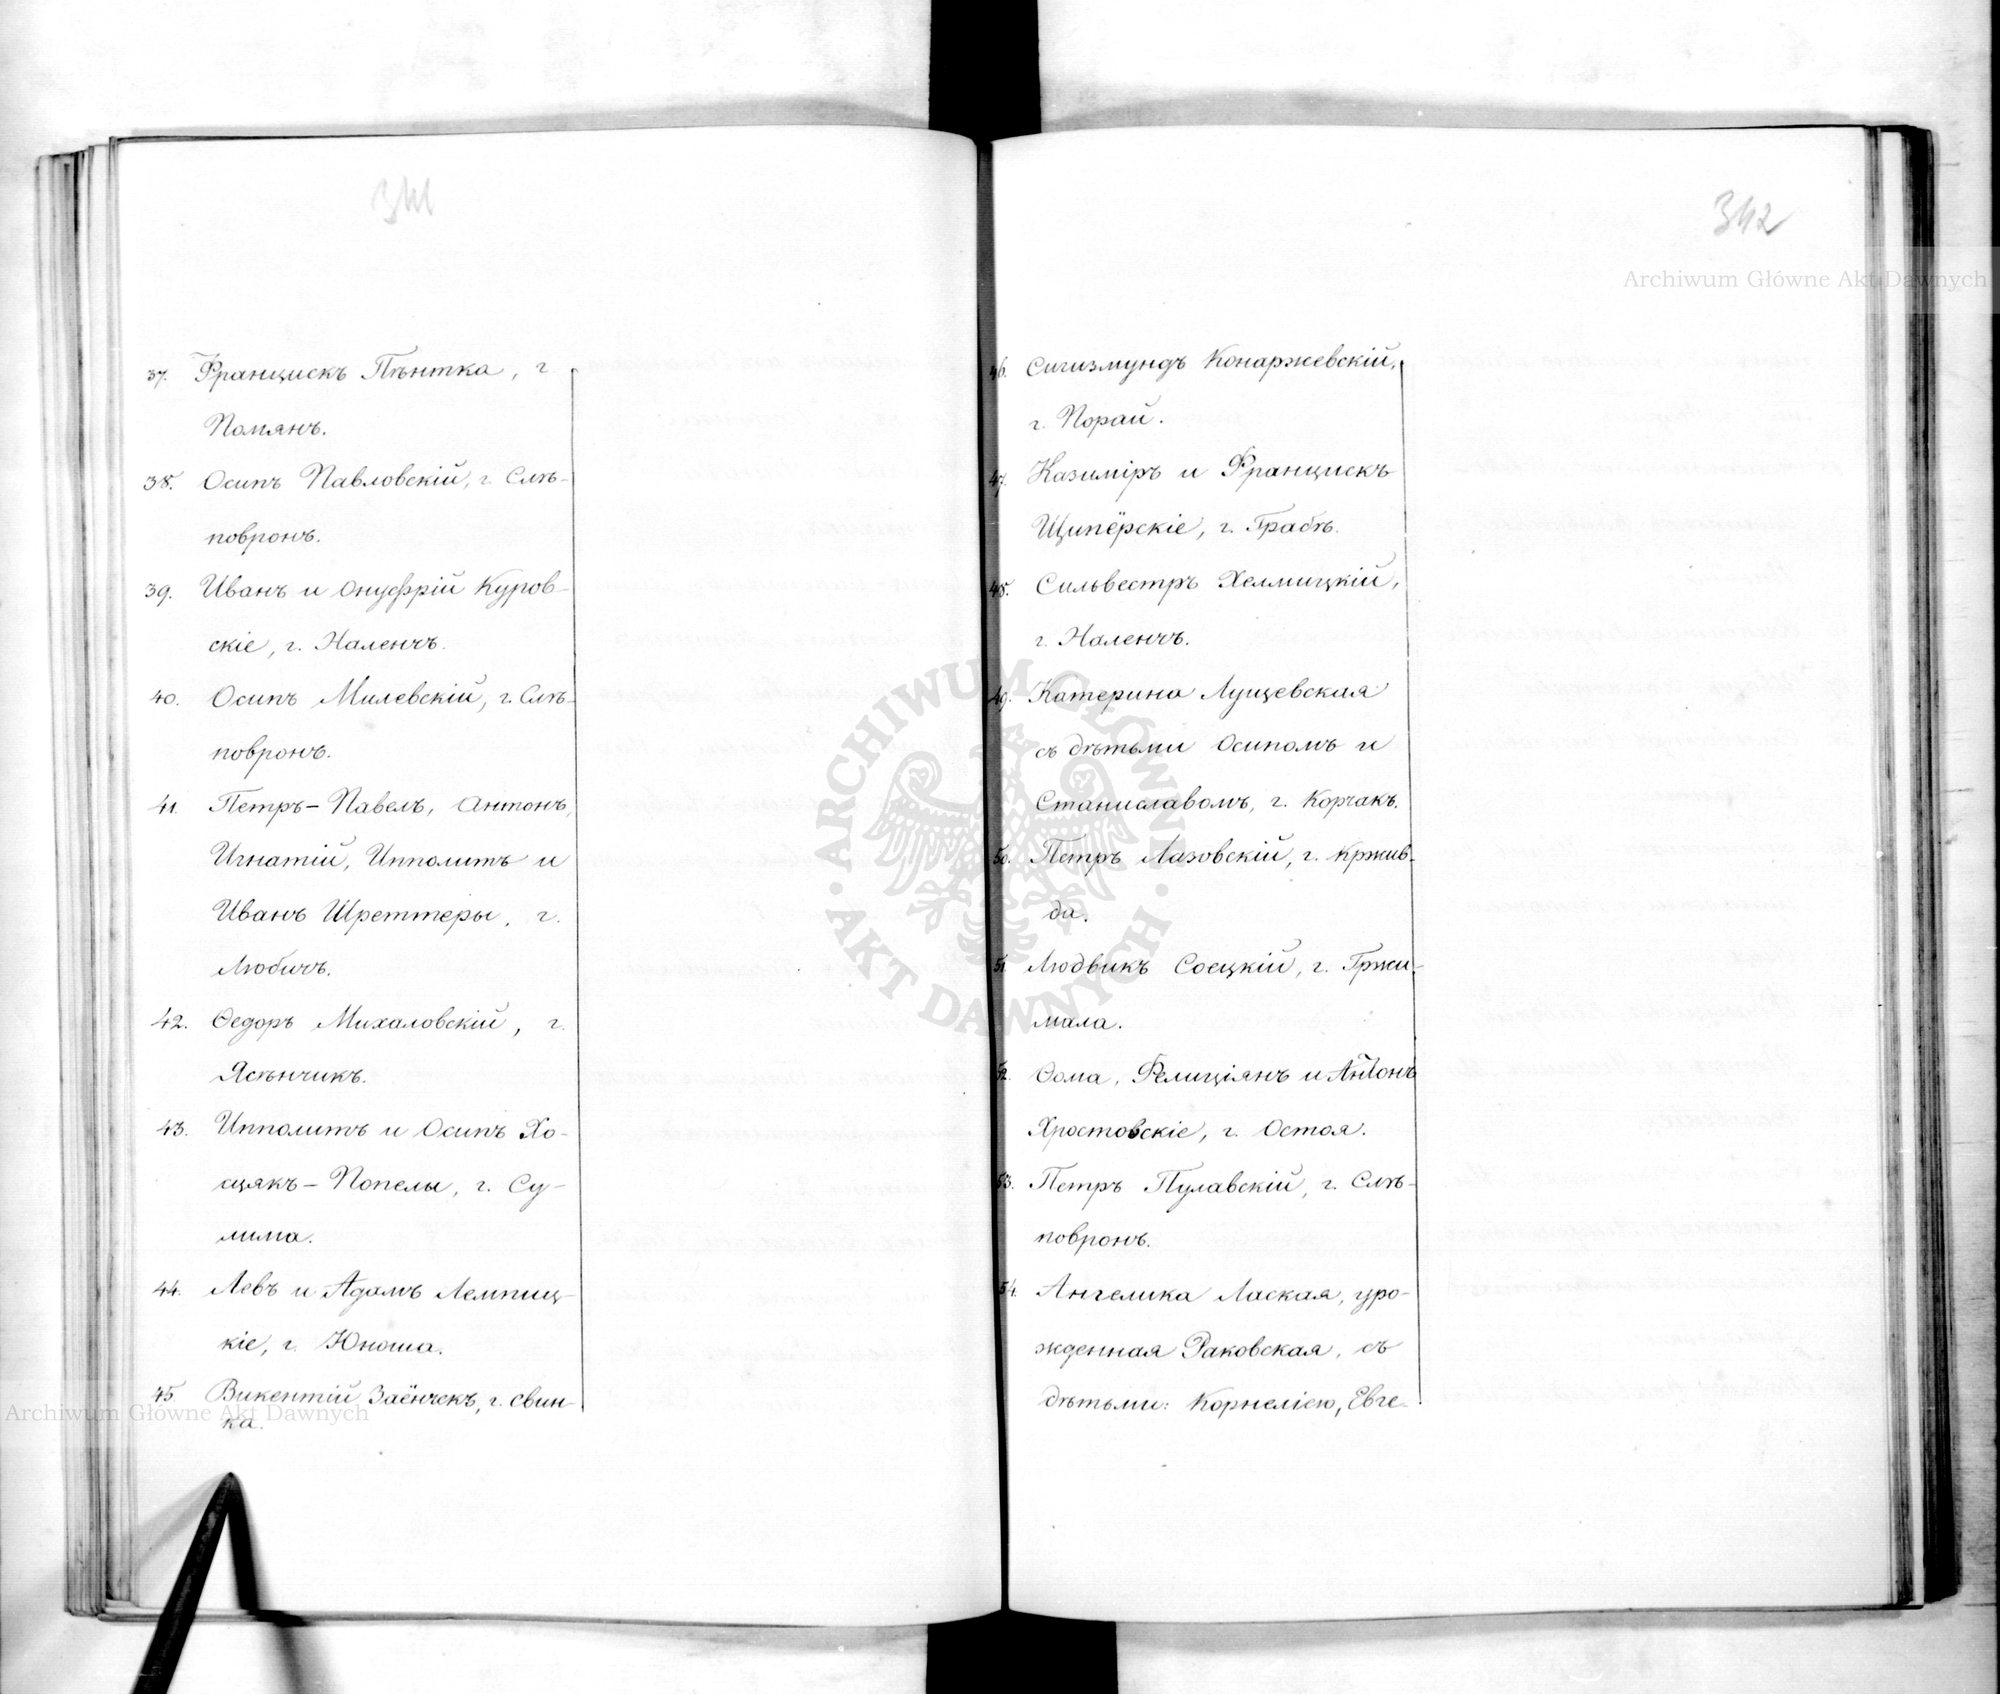 341
37. Францискъ Пѣнтка, г.
Помянъ.
38. Осипъ Павловскій, г. Слѣ-
повронъ.
39. Иванъ и Онуфрій Куров-
скіе, г. Наленчъ.
40. Осипъ Милевскій, г. Слѣ-
повронъ.
41. Петръ-Павелъ, Антонъ,
Игнатій, Ипполитъ и
Иванъ Шреттеры, г.
Любичъ.
42. Ѳедоръ Михаловскій, г.
Ясѣнчикъ.
43. Ипполитъ и Осипъ Хо-
сцякъ-Попелы, г. Су-
лима.
44. Левъ и Адамъ Лемпиц-
кіе, г. Юноша.
45. Викентій Заёнчекъ, г. Свин-
ка.
Archiwum Główne Akt Dawnych
342
Archiwum Główne Akt Dawnych
46. Сигизмундъ Конаржевскій,
г. Порай.
47. Казиміръ и Францискъ
Щипёрскіе, г. Грабѣ.
48. Сильвестръ Хелмицкій,
г. Наленчъ.
49. Катерина Лущевская
съ дѣтьми Осипомъ и
Станиславомъ, г. Корчакъ.
50. Петръ Лазовскій, г. Кржив-
да.
51. Людвикъ Соецкій, г. Гржи-
мала.
52. Ѳома, Фелиціянъ и Антонъ
Хростовскіе, г. Остоя.
53. Петръ Пулавскій, г. Слѣ-
повронъ.
54. Ангелика Лаская, уро-
жденная Раковская, съ
дѣтьми: Корнеліею, Евге-
ARCHIWUM GŁÓWNE
AKT DAWNYCH